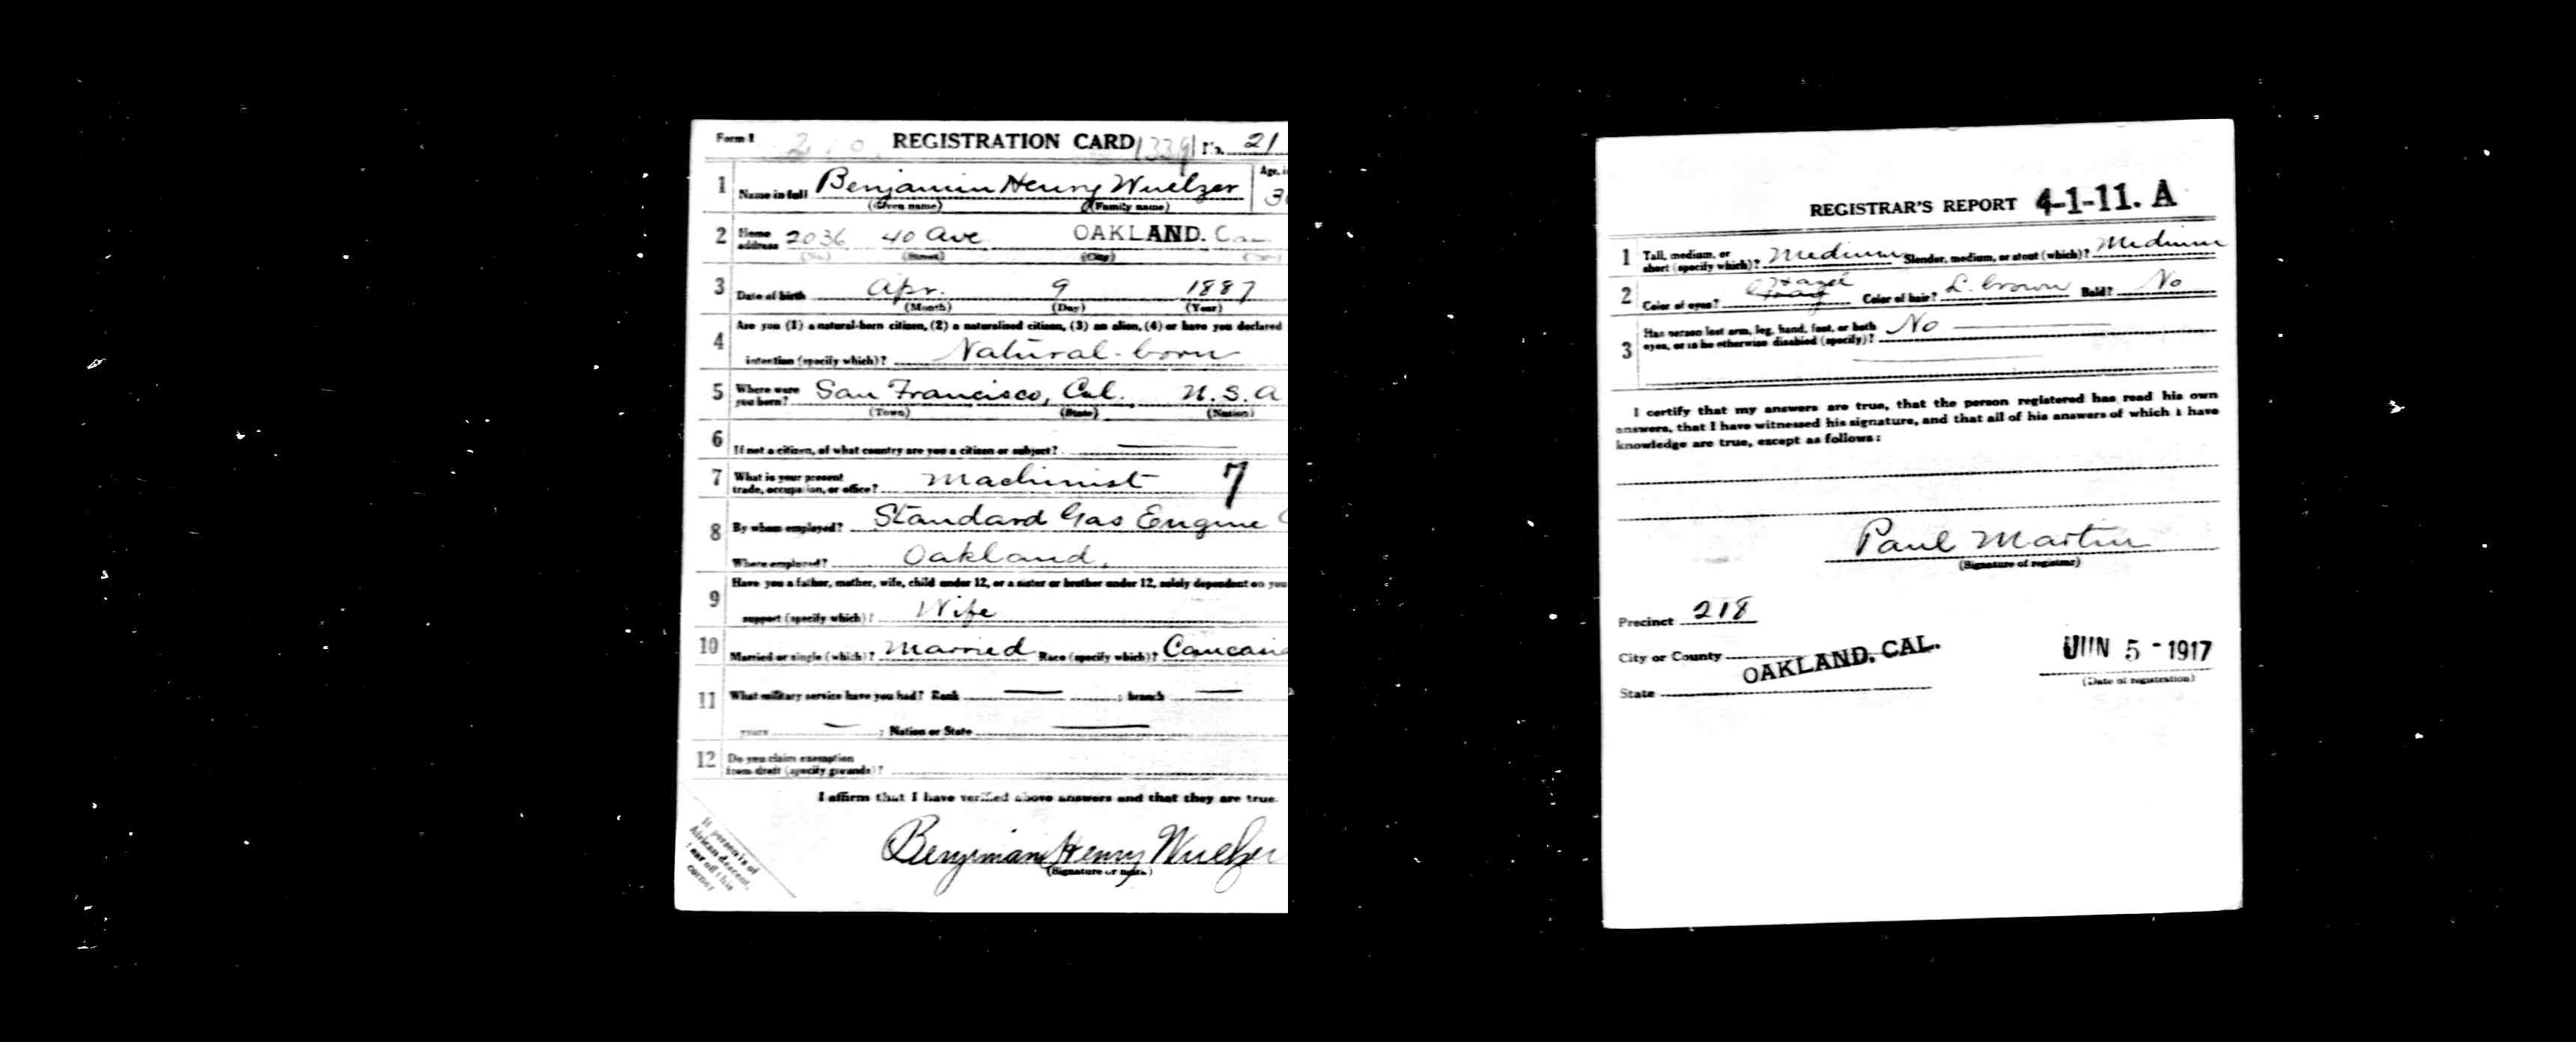 Form 1 REGISTRATION CARD 1339 No. 21
1 Name in full Benjamin Henry Wuelzer Age, i
(Given name) (Family name) 3
2 Home address 2036 40 Ave OAKLAND. Cal.
(No.) (Street) (City)
3 Date of birth Apr. 9 1887
(Month) (Day) (Year)
4 Are you (1) a natural-born citizen, (2) a naturalized citizen, (3) an alien, (4) or have you declared
intention (specify which)? Natural-born
5 Where were you born? San Francisco, Cal. U.S.A
(Town) (State) (Nation)
6 If not a citizen, of what country are you a citizen or subject?
7 What is your present trade, occupation, or office? Machinist 7
8 By whom employed? Standard Gas Engine C
Where employed? Oakland,
9 Have you a father, mother, wife, child under 12, or a sister or brother under 12, solely dependent on you
support (specify which)? Wife
10 Married or single (which)? Married Race (specify which)? Caucasia
11 What military service have you had? Rank ; branch
years ; Nation or State
12 Do you claim exemption
from draft (specify grounds)?
I affirm that I have verified above answers and that they are true.
Benjiman Henry Wuelzer
(Signature or mark)
If person is of
African descent,
tear off this
corner
REGISTRAR'S REPORT 4-1-11. A
1 Tall, medium, or short (specify which)? Medium Slender, medium, or stout (which)? Medium
2 Color of eyes? Hazel Gray Color of hair? L. brown Bald? No
3 Has person lost arm, leg, hand, foot, or both
eyes, or is he otherwise disabled (specify)? No
I certify that my answers are true, that the person registered has read his own
answers, that I have witnessed his signature, and that all of his answers of which I have
knowledge are true, except as follows:
Paul Martin
(Signature of registrar)
Precinct 218
City or County OAKLAND, CAL.
State
JUN 5 - 1917
(Date of registration)